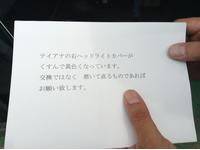 テイアナの右ヘッドライトカバーが
くすんで黄色くなっています。
交換ではなく　磨いて直るものであれば
お願い致します。